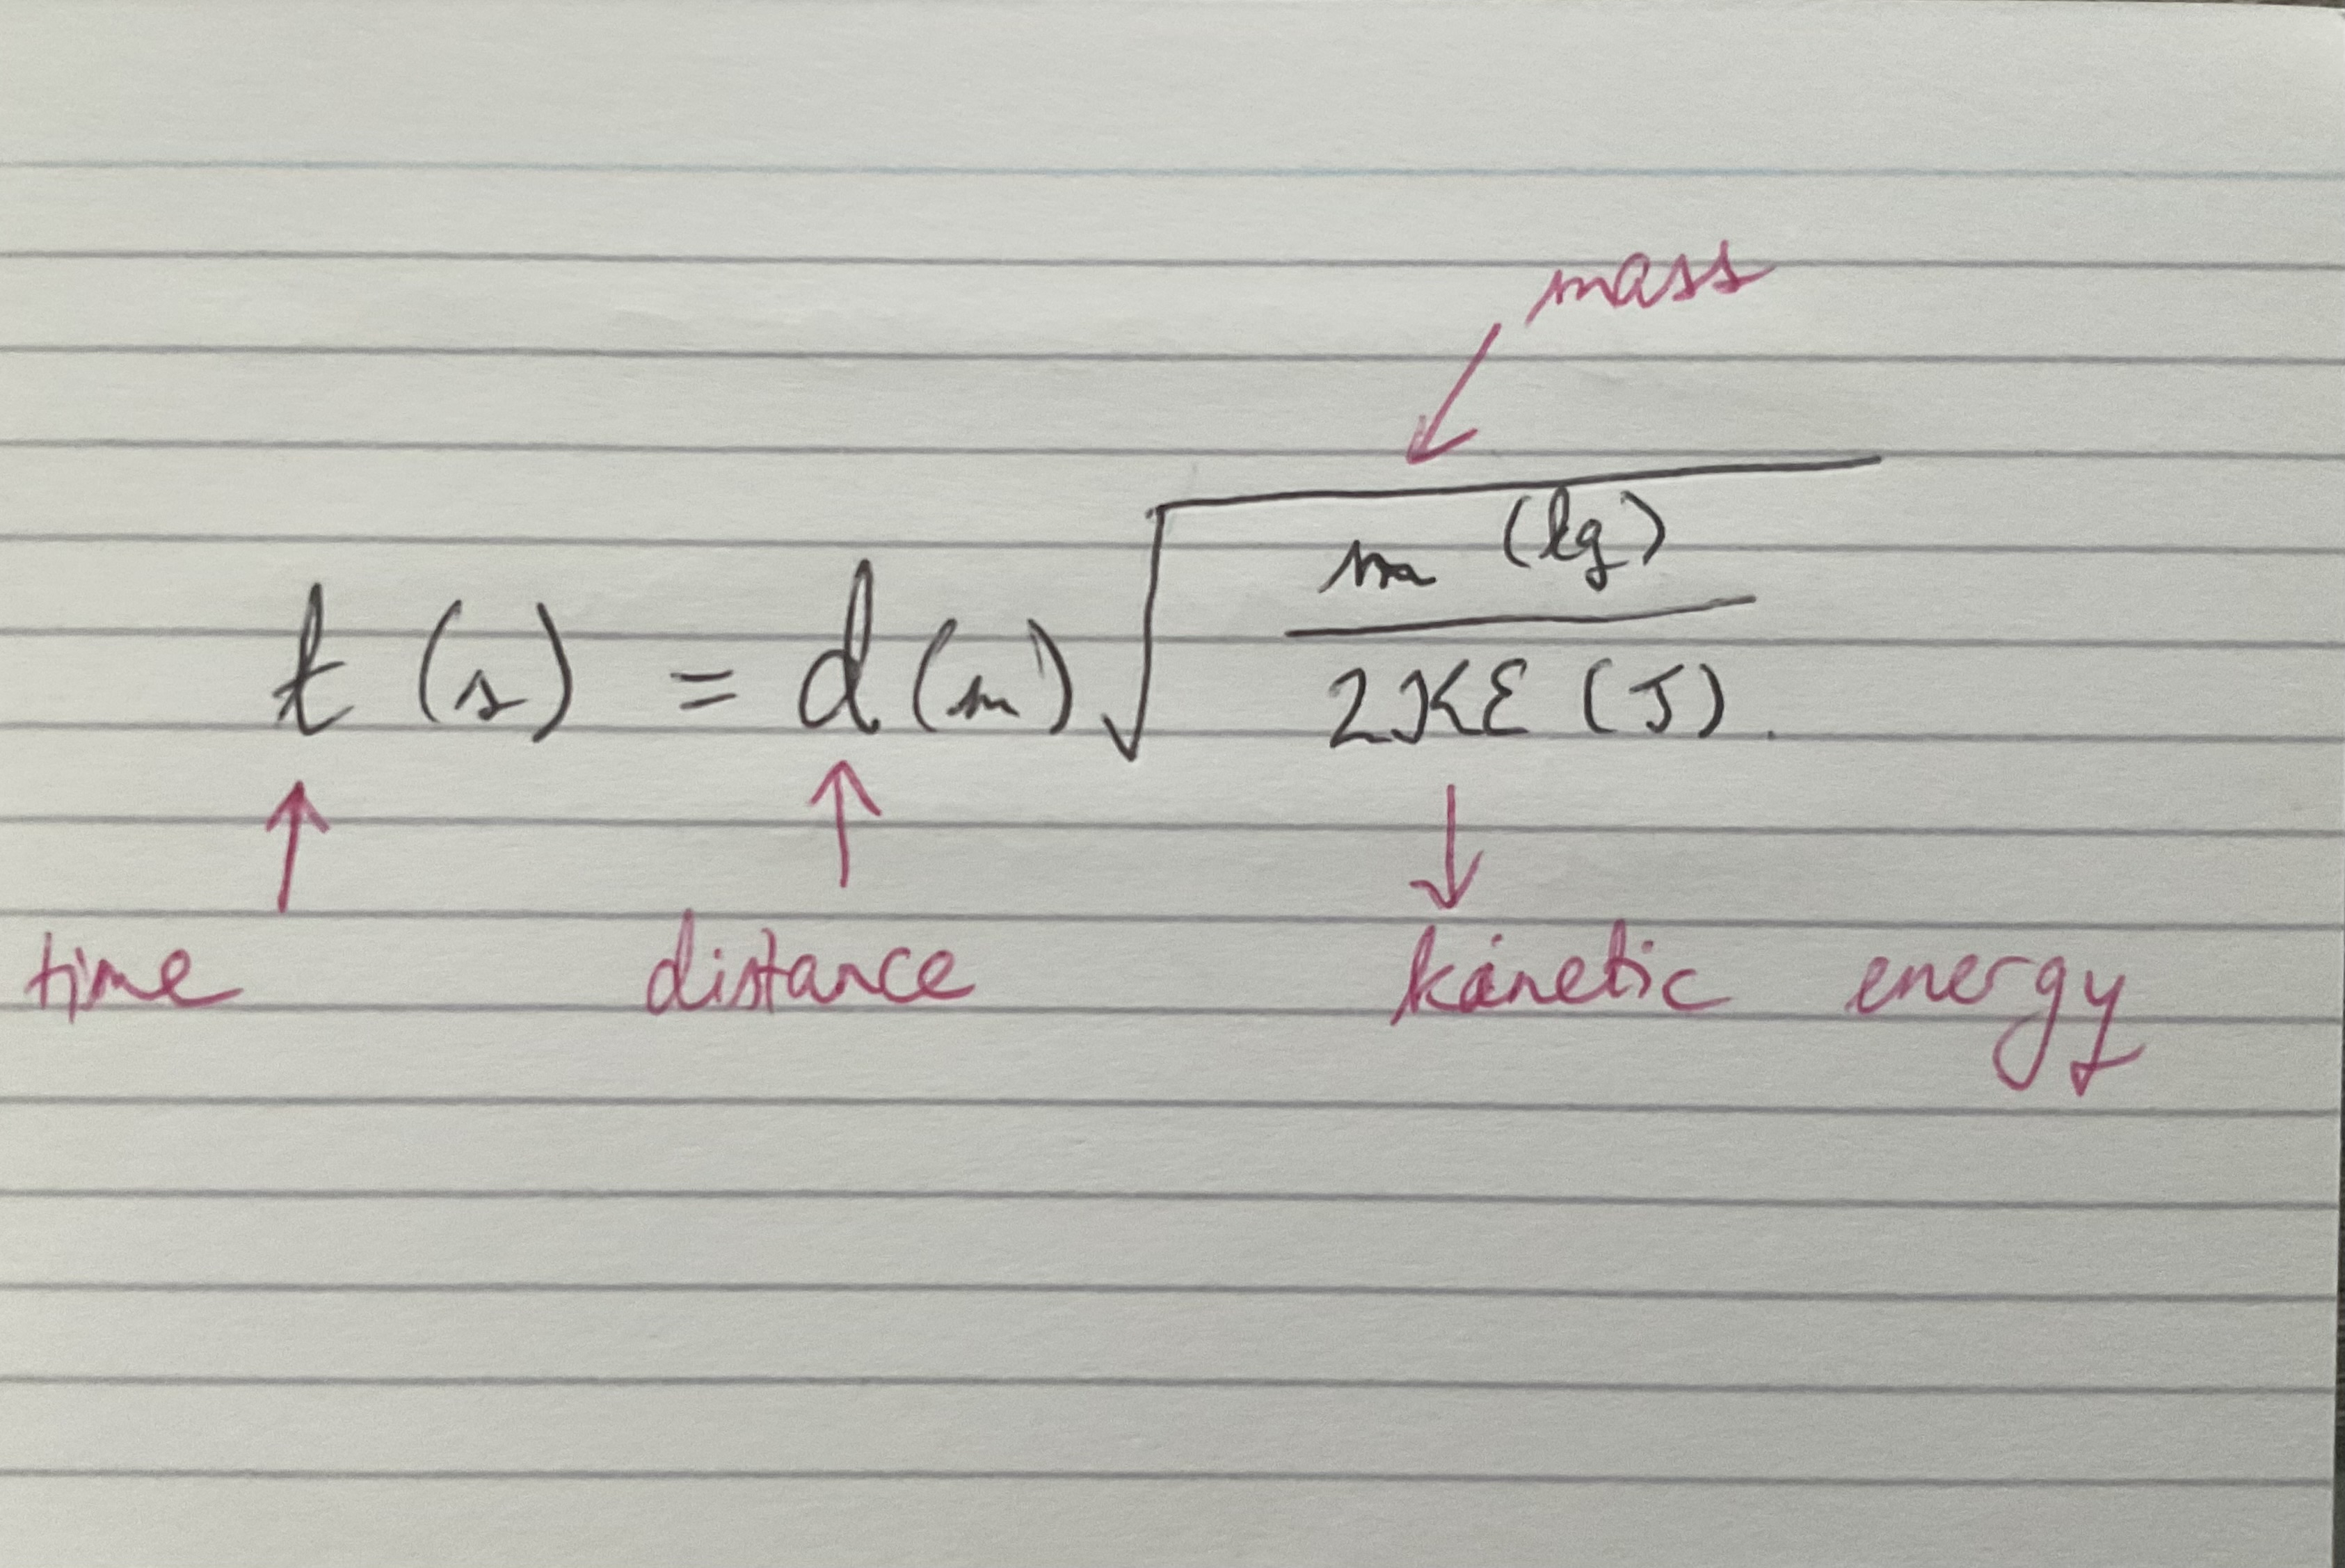 mass
t (s) = d (m) √ m (kg) / 2KE (J).
time distance kinetic energy